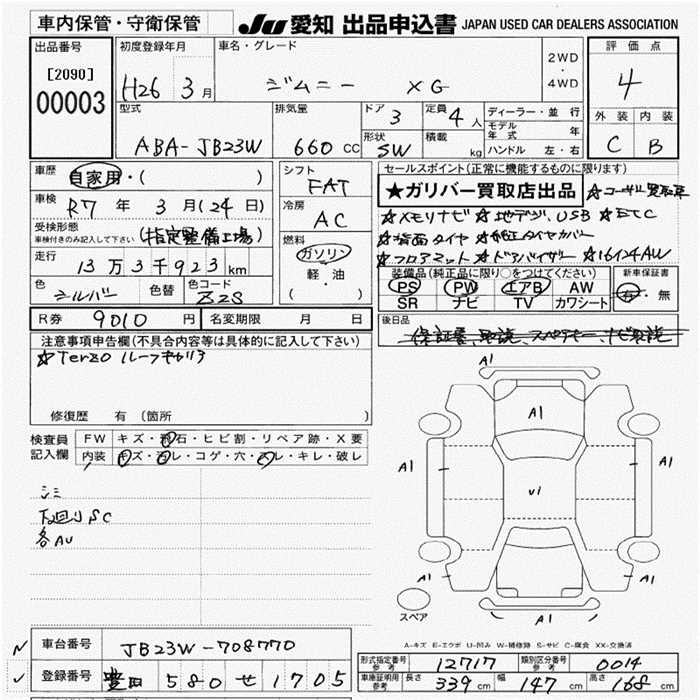 車内保管・守衛保管
JU 愛知 出品申込書 JAPAN USED CAR DEALERS ASSOCIATION
出品番号
[2090]
00003
初度登録年月
H26 3月
車名・グレード
ジムニー XG
2WD
・
4WD
評価点
4
外装 内装
C B
型式
ABA-JB23W
排気量
660 CC
ドア 3
形状 SW
定員 4人
積載 kg
ディーラー・並行
モデル年式 年
ハンドル 左・右
車歴
自家用・( )
車検
R7年 3月(24日)
受検形態
車検付きのみ記入して下さい
(指定整備工場)
走行
13万3千923km
色
シルバー
色替
色コード
Z2S
シフト
FAT
冷房
AC
燃料
ガソリン
軽・油
( )
R券 9010円
名変期限 月 日
セールスポイント(正常に機能するものに限ります)
★ガリバー買取店出品 ☆ユーザー買取車
☆メモリナビ ☆地デジ、USB ☆ETC
☆背面タイヤ ☆純正タイヤカバー
☆フロアマット ☆ドアバイザー ☆16インチAW
装備品(純正品に限り○をつけてください)
PS PW エアB AW
SR ナビ TV カワシート
新車保証書
有・無
後日品
保証書、取説、スペアキー、ナビ取説
注意事項申告欄(不具合内容等は具体的に記入して下さい)
☆Terzo ルーフキャリア
修復歴 有(箇所
検査員記入欄
FW キズ・飛石・ヒビ割・リペア跡・X要
内装 キズ・汚レ・コゲ・穴・スレ・キレ・破レ
シミ
下回りSC
各AU
A1
A1
A1
A1
U1
A1
A1
A1
スペア
A-キズ E-エクボ U-凹み W-補修跡 S-サビ C-腐食 XX-交換済
車台番号
JB23W-708770
登録番号
豊田 580 せ 1705
形式指定番号
参考
12717
類別区分番号
参考
0014
車庫証明用
参考
長さ 339cm
幅 147cm
高さ 168cm